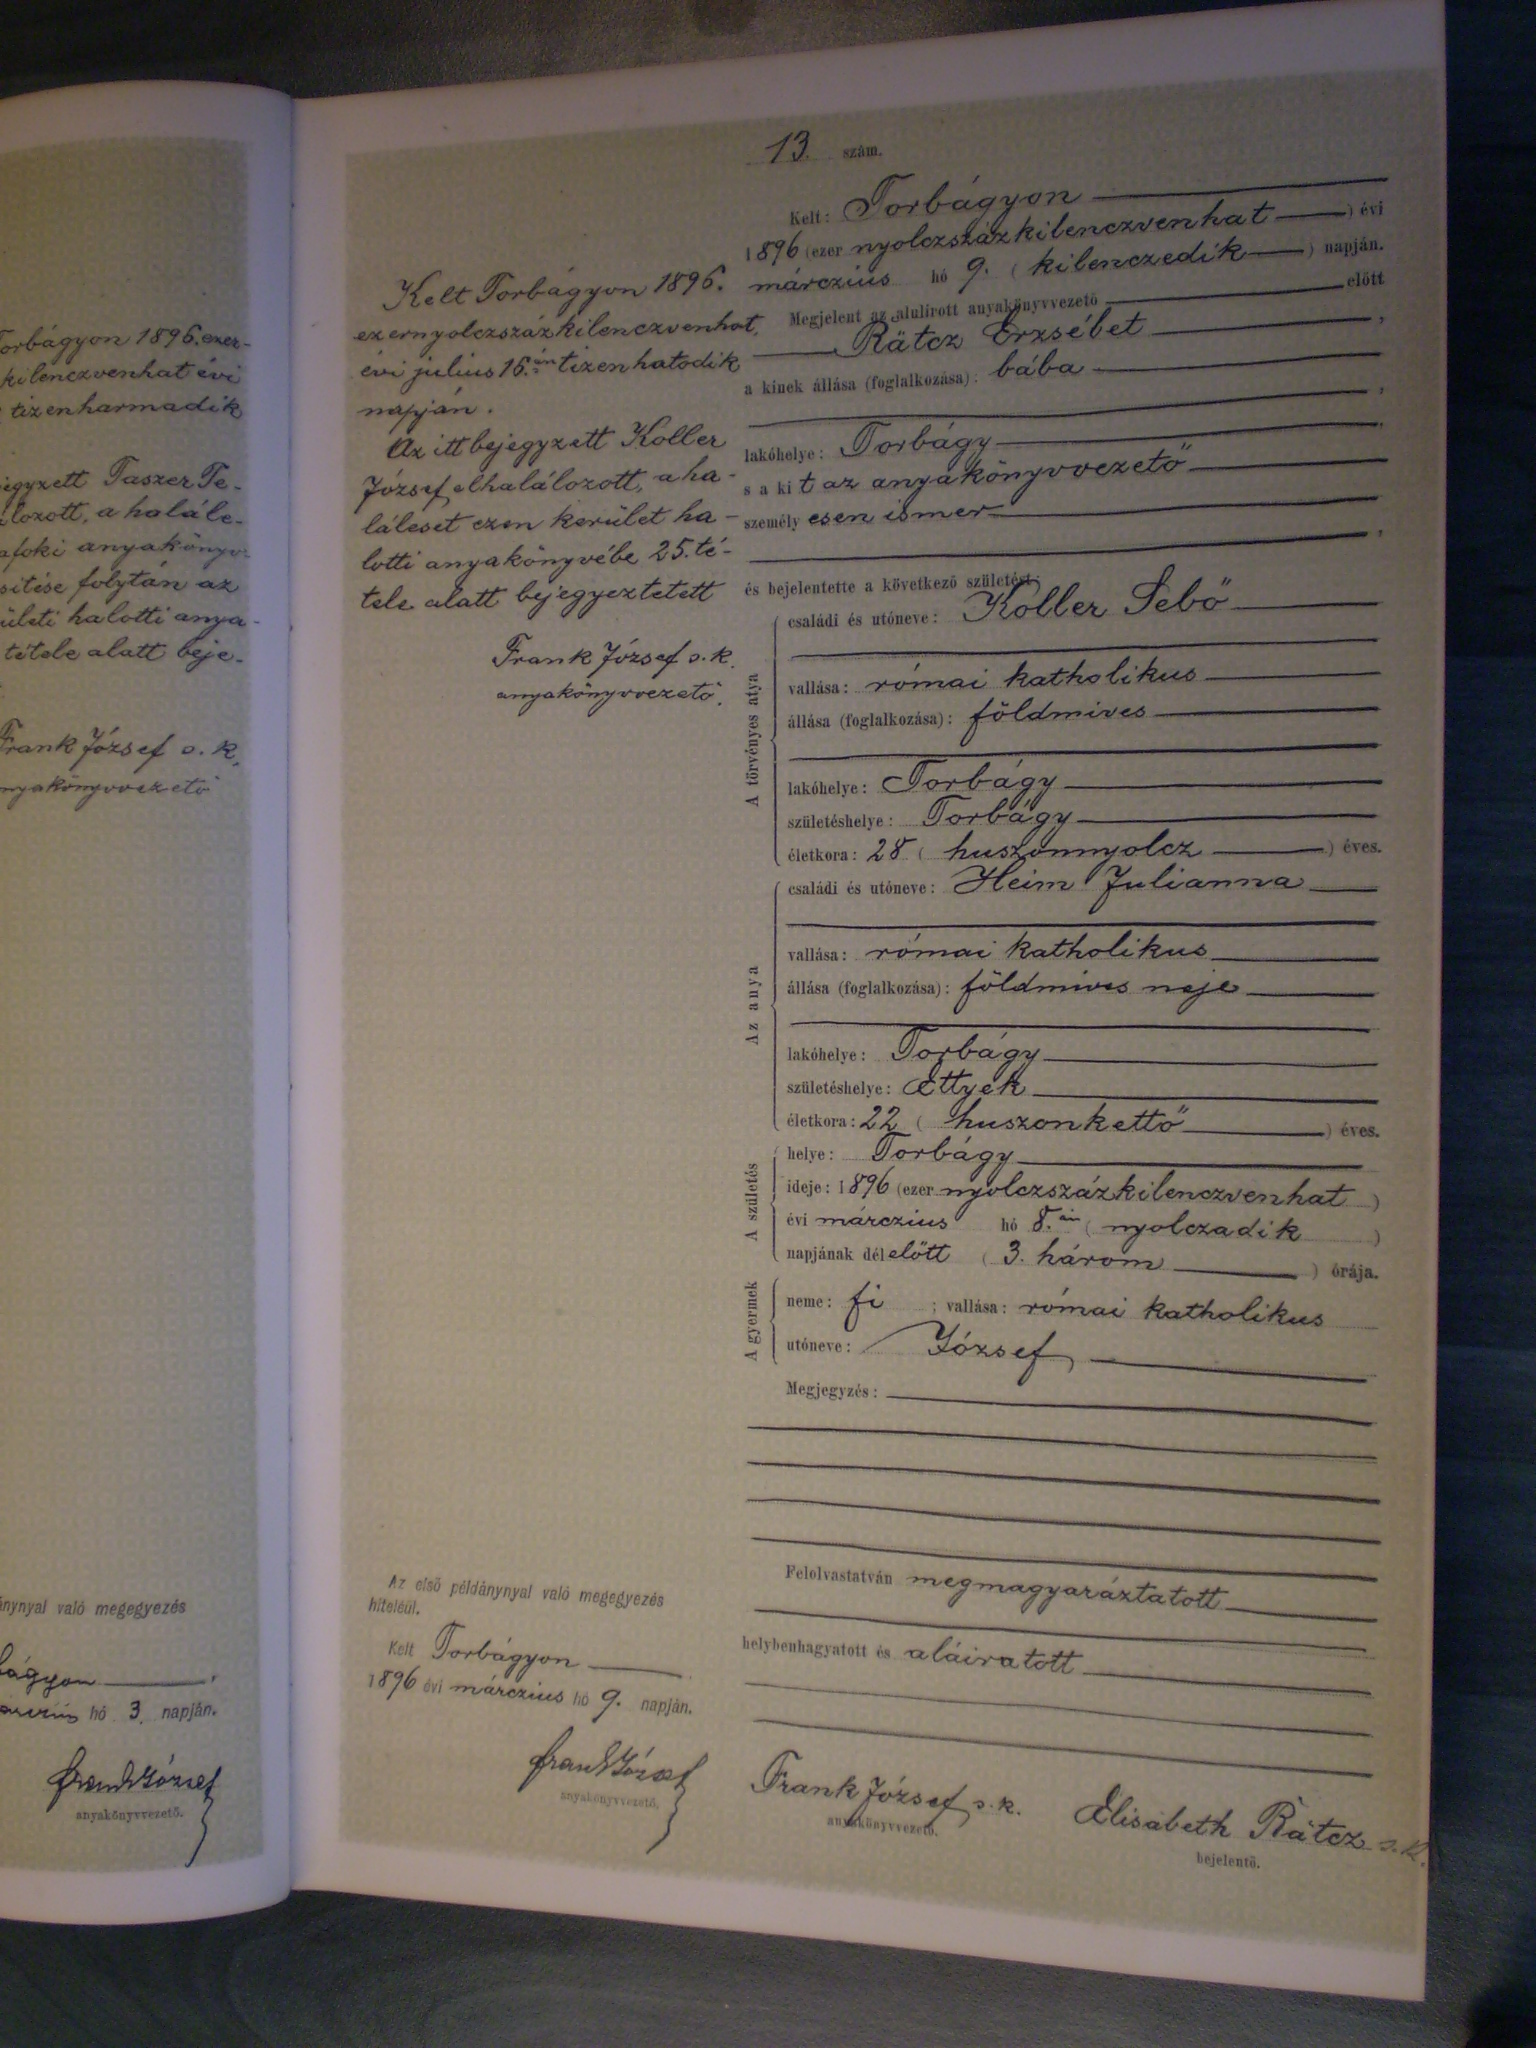 Torbágyon 1896. ezer-
kilenczvenhat évi
tizenharmadik
egyzett Taszer Te-
lozott, a halále-
afoki anyakönyv-
sítése folytán az
ületi halotti anya-
tétele alatt beje-
Frank József s. k.
nyakönyvvezető
ánynyal való megegyezés
bágyon
hó 3. napján.
Frank József
anyakönyvvezető.
Kelt Torbágyon 1896.
ezernyolczszázkilenczvenhat,
évi július 16.án tizenhatodik
napján.
Az itt bejegyzett Koller
József elhalálozott, a ha-
láleset ezen kerület ha-
lotti anyakönyvébe 25. té-
tele alatt bejegyeztetett
Frank József s. k.
anyakönyvvezető.
Az első példánynyal való megegyezés
hiteléül.
Kelt Torbágyon
1896 évi márczius hó 9. napján.
Frank József
anyakönyvvezető.
13. szám.
Kelt: Torbágyon
1896 (ezer nyolczszázkilenczvenhat) évi
márczius hó 9. (kilenczedik) napján.
Megjelent az alulírott anyakönyvvezető előtt
Rätcz Erzsébet,
a kinek állása (foglalkozása): bába
,
lakóhelye: Torbágy,
s a kit az anyakönyvvezető
személyesen ismer
,
és bejelentette a következő születést:
A törvényes atya
családi és utóneve: Koller Sebő
vallása: római katholikus
állása (foglalkozása): földmives
lakóhelye: Torbágy
születéshelye: Torbágy
életkora: 28 (huszonnyolcz) éves.
Az anya
családi és utóneve: Heim Julianna
vallása: római katholikus
állása (foglalkozása): földmives neje
lakóhelye: Torbágy
születéshelye: Ettyek
életkora: 22 (huszonkettő) éves.
A születés
helye: Torbágy
ideje: 1896 (ezer nyolczszázkilenczvenhat)
évi márczius hó 8.án (nyolczadik)
napjának délelőtt (3. három) órája.
A gyermek
neme: fi; vallása: római katholikus
utóneve: József
Megjegyzés:
Felolvastatván megmagyaráztatott
helybenhagyatott és aláiratott
Frank József s. k.
anyakönyvvezető.
Elisabeth Rätcz s. k.
bejelentő.